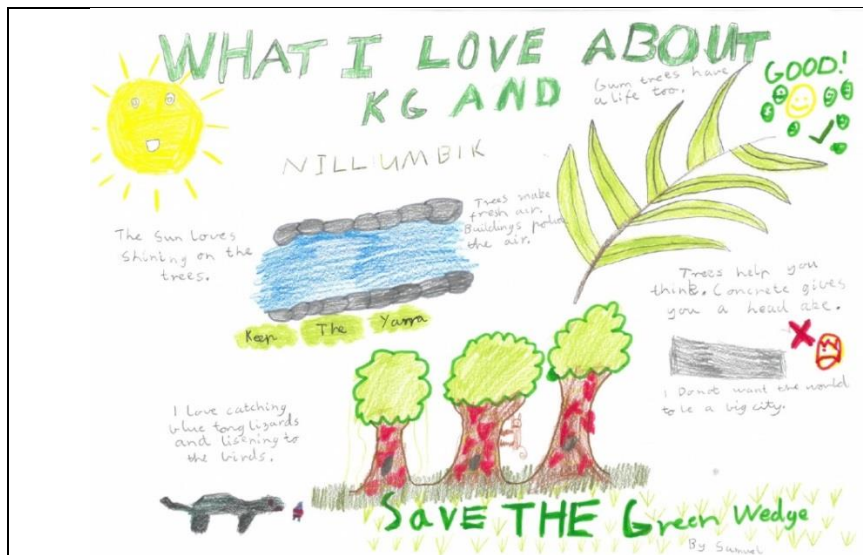 WHAT I LOVE ABOUT
KG AND
NILLIUMBIK
Gum trees have
a life too.
GOOD!
The Sun Loves
Shining on the
trees.
Trees make
fresh air.
Buildings polute
the air.
Keep The Yarra
Trees help you
think. Concrete gives
you a head ake.
I Do not want the world
to be a big city.
I Love catching
blue tong lizards
and listening to
the birds.
Save THE Green Wedge
By Samuel